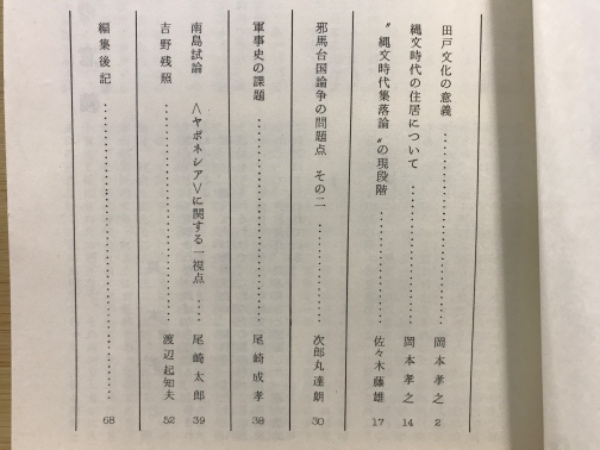 田戸文化の意義 .......................... 岡本孝之 2
縄文時代の住居について .................. 岡本孝之 14
〝縄文時代集落論〟の現段階 .............. 佐々木藤雄 17
邪馬台国論争の問題点 その二 ............ 次郎丸達朗 30
軍事史の課題 ............................ 尾崎成孝 38
南島試論 〈ヤポネシア〉に関する一視点 .... 尾崎太郎 39
吉野残照 ................................ 渡辺起知夫 52
編集後記 ................................ 68